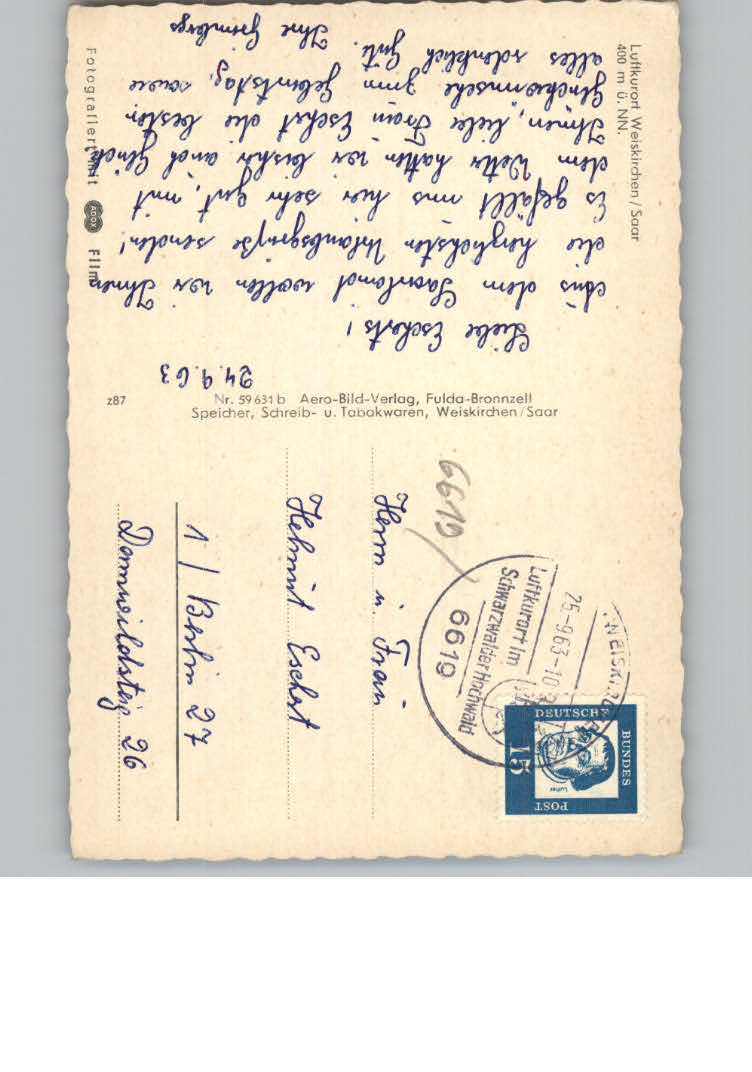 Luftkurort Weiskirchen / Saar
400 m ü. NN.
24.9.63
Liebe Escherts!
Aus dem Saarland wollen wir Ihnen
die herzlichsten Urlaubsgrüße senden!
Es gefällt uns hier sehr gut, mit
dem Wetter hatten wir bisher auch Glück.
Ihnen, liebe Frau Eschert die besten
Glückwünsche zum Geburtstag, sowie
alles erdenklich Gute.
Ihre
Fotografiert mit ADOX Film
z87
Nr. 59 631 b Aero-Bild-Verlag, Fulda-Bronnzell
Speicher, Schreib- u. Tabakwaren, Weiskirchen / Saar
6619
WEISKIRCHEN
25.-9.63-10
Luftkurort im
Schwarzwälder Hochwald
6619
DEUTSCHE
BUNDES
POST
15
Luther
Herrn u. Frau
Helmut Eschert
1 / Berlin 27
Damwildsteig 26